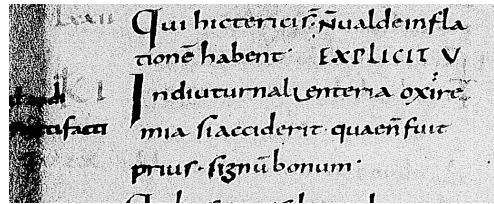 Qui hictericis· n̄ ualde infla
tionē habent· EXPLICIT V
In diuturna lienteria oxire
mia si acciderit· quae n̄ fuit
prius· signū bonum·